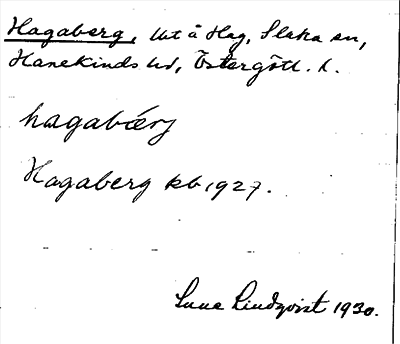 Hagaberg, Ut å Hag, Slaka sn,
Hanekinds hd, Östergötl. l.
hagabærj
Hagaberg kb 1927.
Sune Lindqvist 1930.